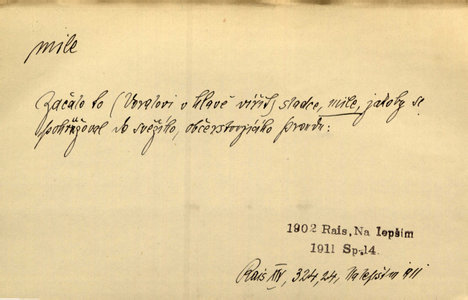 mile
Začalo to (Voralovi v hlavě vířit) sladce, mile, jakoby se
pohružoval do svěžího, občerstvujícího proudu:
1902 Rais, Na lepším
1911 Sp.14.
Rais XIV, 324,24, Na lepším